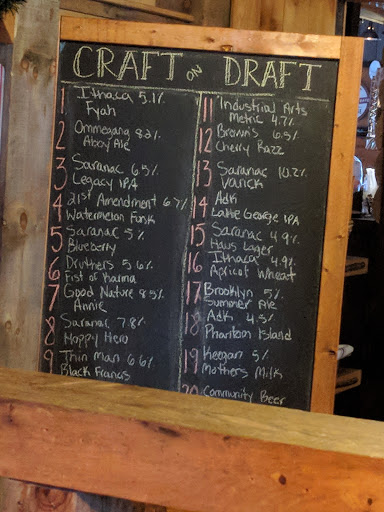 CRAFT ON DRAFT
1 Ithaca 5.1%
Fyah
2 Ommegang 8.2%
Abby Ale
3 Saranac 6.5%
Legacy IPA
4 21st Amendment 6.7%
Watermelon Funk
5 Saranac 5%
Blueberry
6 Druthers 5.6%
Fist of Karma
7 Good Nature 8.5%
Annie
8 Saranac 7.8%
Hoppy Hero
9 Thin Man 6.6%
Black Francis
11 Industrial Arts
Metric 4.7%
12 Brown's 6.5%
Cherry Razz
13 Saranac 10.2%
Varick
14 Adk
Lake George IPA
15 Saranac 4.9%
Haus Lager
16 Ithaca 4.9%
Apricot Wheat
17 Brooklyn 5%
Summer Ale
18 Adk 4.5%
Phantom Island
19 Keegan 5%
Mothers Milk
20 Community Beer